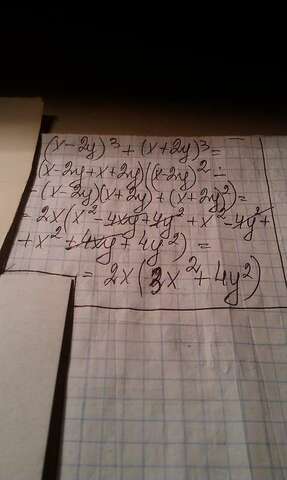 (x-2y)³+(x+2y)³=
(x-2y+x+2y)((x-2y)²-
-(x-2y)(x+2y)+(x+2y)²)=
=2x(x²-4xy+4y²+x²-4y²+
+x²+4xy+4y²)=
=2x(3x²+4y²)